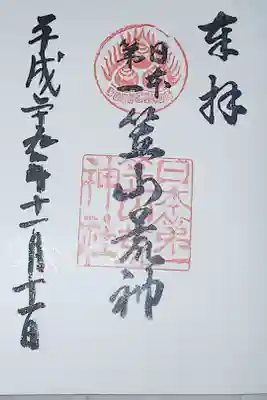 奉拝
日本
第一
笠山荒神
日本第一
神社
平成二十九年十一月十一日